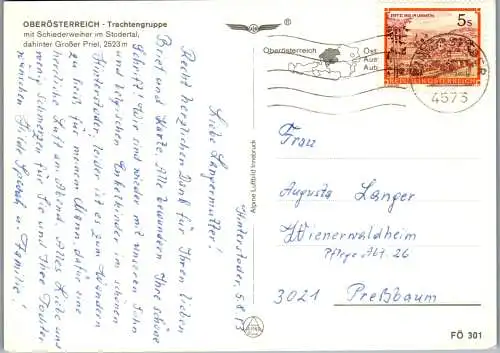 OBERÖSTERREICH - Trachtengruppe
mit Schiederweiher im Stodertal,
dahinter Großer Priel, 2523 m
®
Oberösterreich
4573
5 S
STIFT ST. PAUL IM LAVANTTAL
REPUBLIK ÖSTERREICH
Hinterstoder, 5.8.
Liebe Langermutter!
Recht herzlichen Dank für Ihren lieben
Brief und Karte. Alle bewundern Ihre schöne
Schrift! Wir sind wieder mit unseren Sohn
und belgischen Enkelkinder im schönen
Hinterstoder, leider ist es zum Wandern
zu heiß für meinen Mann, dafür eine
herrliche Luft am Abend. Alles Liebe und
wenig Schmerzen für Sie und Ihre Tochter
wünschen Hilde
Familie!
Alpine Luftbild Innsbruck
Frau
Augusta Langer
Wienerwaldheim
Pflege Abt. 26
3021 Preßbaum
FÖ 301